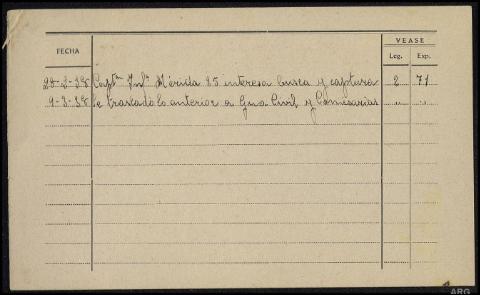 VEASE
FECHA Leg. Exp.
28-2-38 Captⁿ Infª Mérida 85 interesa busca y captura 2 71
9-3-38 Se traslado lo anterior a Gua Civil y Comisarias " "
ARG